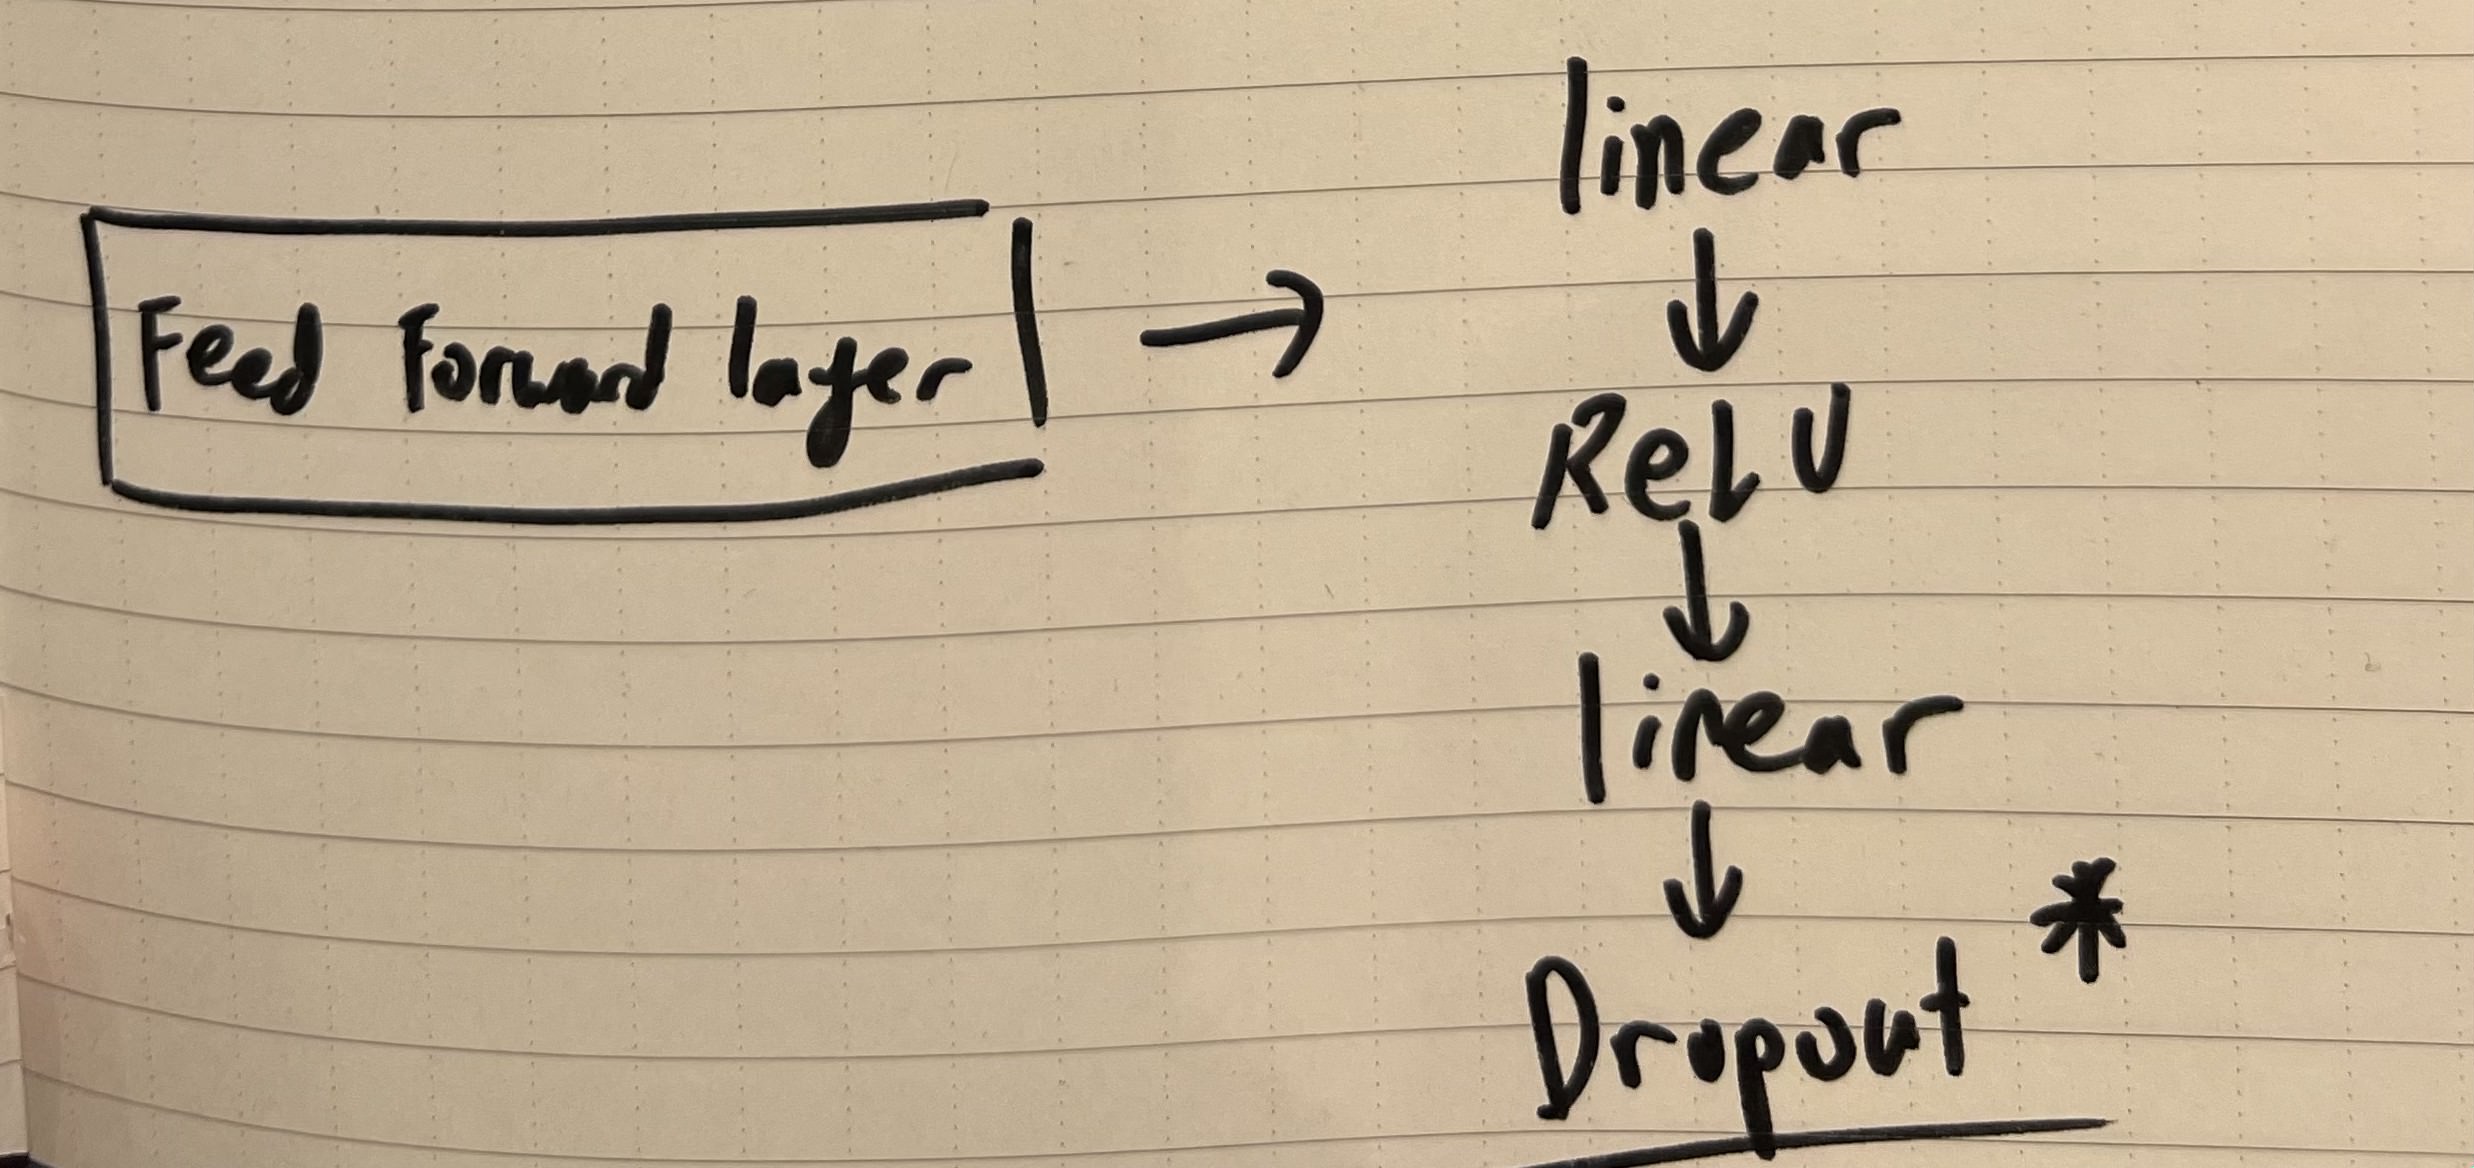 Feed Forward layer
linear
ReLU
linear
Dropout *